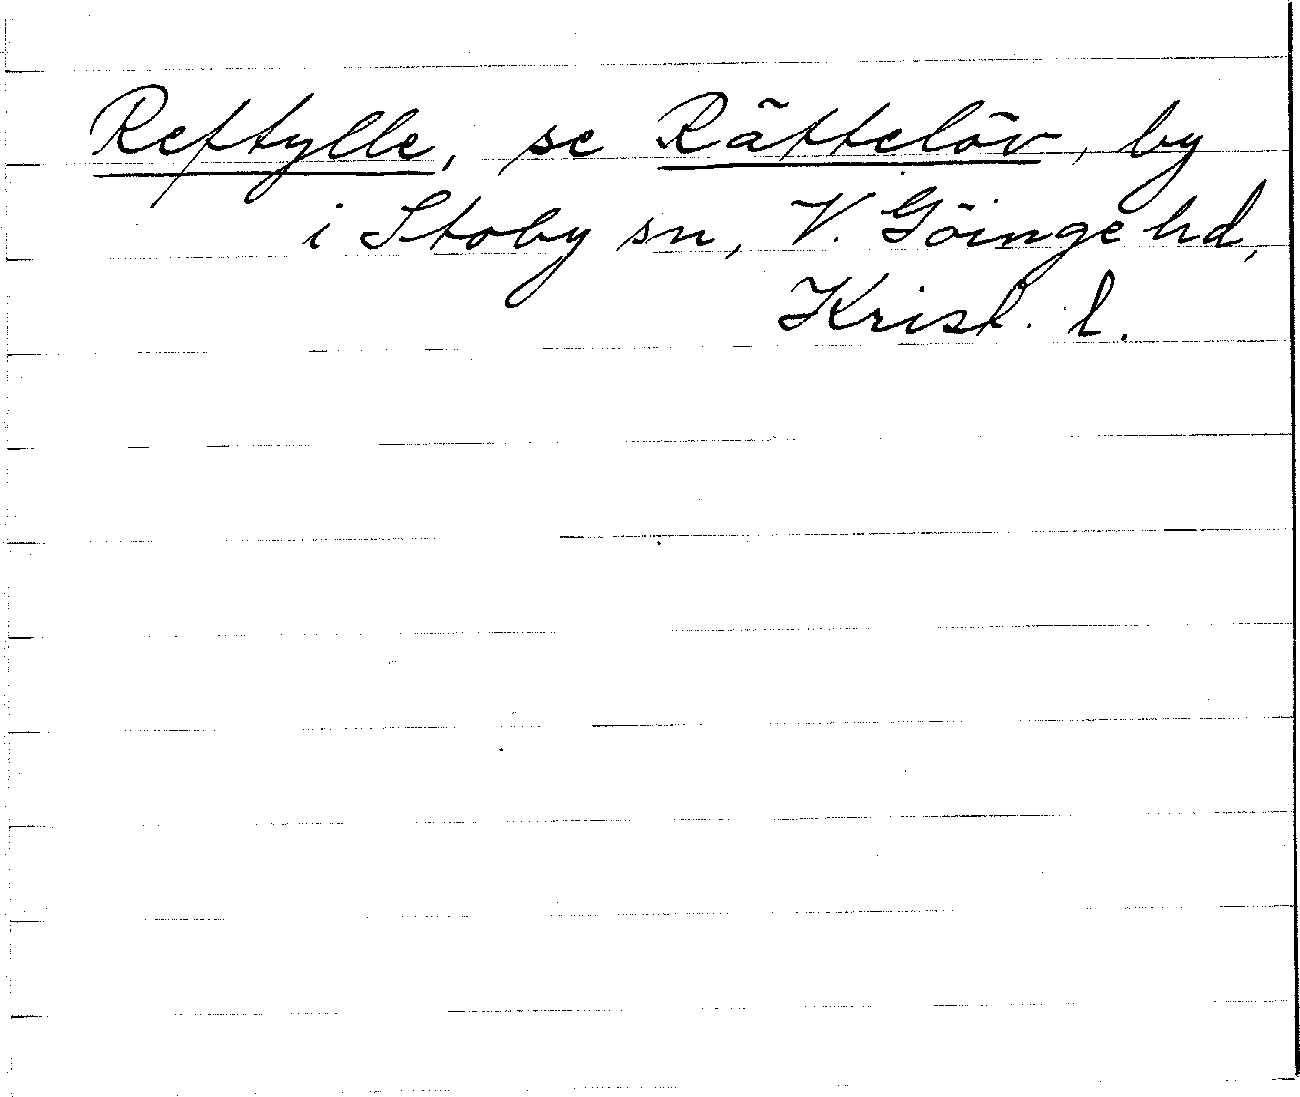 Reftylle, se Rättelöv, by
i Stoby sn, V. Göinge hd,
Krist. l.